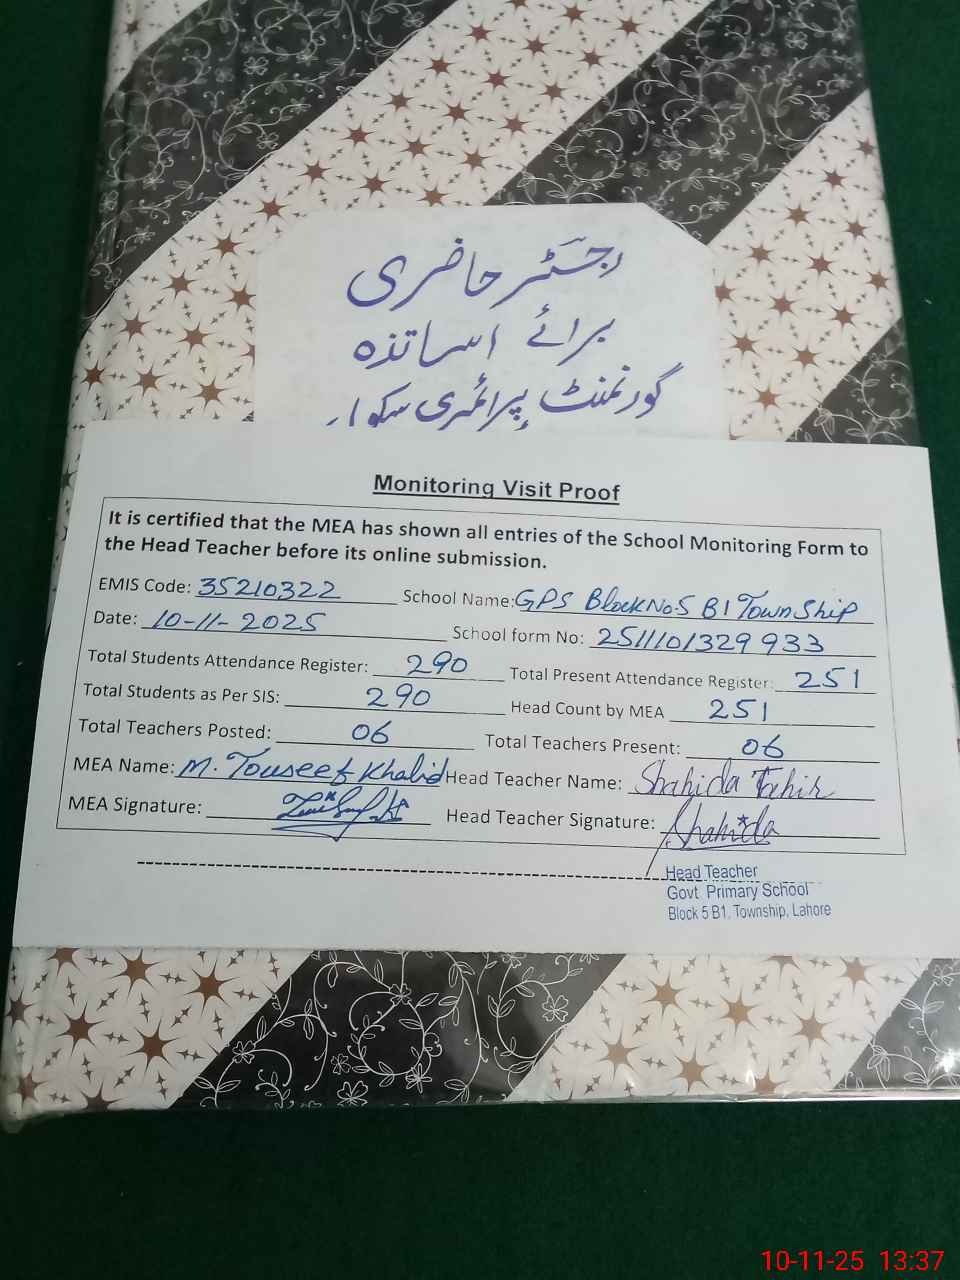 رجسٹر حاضری
برائے اساتذہ
گورنمنٹ پرائمری
Monitoring Visit Proof
It is certified that the MEA has shown all entries of the School Monitoring Form to
the Head Teacher before its online submission.
EMIS Code: 35210322 School Name: GPS Block No 5 B1 Township
Date: 10-11-2025 School form No: 2511101329933
Total Students Attendance Register: 290 Total Present Attendance Register: 251
Total Students as Per SIS: 290 Head Count by MEA 251
Total Teachers Posted: 06 Total Teachers Present: 06
MEA Name: M. Touseef Khalid Head Teacher Name: Shahida Tahir
MEA Signature: Head Teacher Signature: Shahida
Head Teacher
Govt Primary School
Block 5 B1, Township, Lahore
10-11-25 13:37